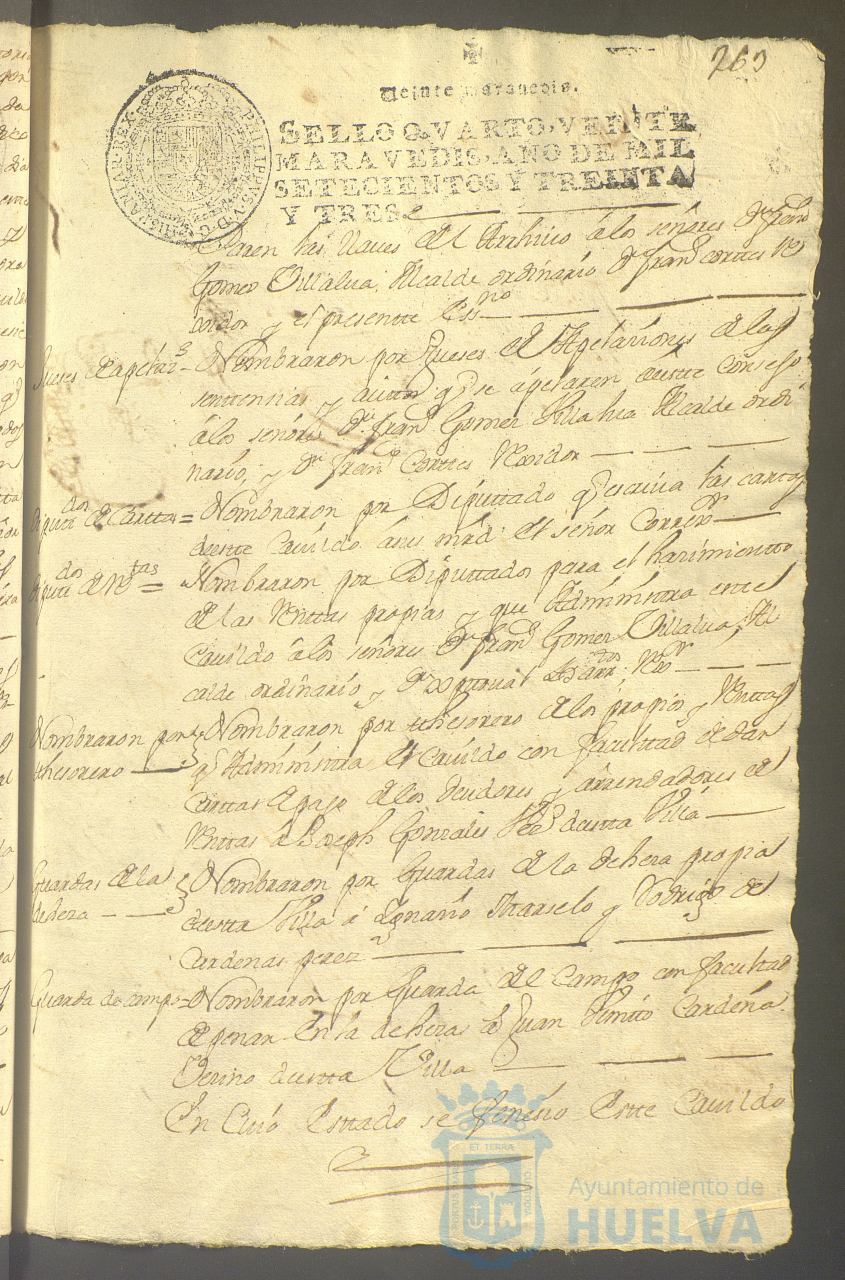 263
Veinte maravedis.
SELLO QVARTO, VEINTE
MARAVEDIS, AÑO DE MIL
SETECIENTOS Y TREINTA
Y TRES
PHILIPPUS V D G HISPANIAR REX
las llaves del Archivo a los señores Dn Franco
Gomez Villalva Alcalde ordinario Dn Franco cortes Re
xidor y el presentte Essno
Jueses de apelazs = Nombraron por Jueses de Apelaziones de las
sentencias y auttos q se apelaren a estte Consejo
a los señores Dn Franco Gomez Villalva Alcalde ordi
nario, y Dn Franco Cortes Rexidor
Diputtdos de Carttas = Nombraron por Diputtado q escriva las carttas
de estte Cavildo a su mrd el señor Corregor
Diputtdos de Rtas = Nombraron por Diputtados para el hazimientto
de las Renttas propias y que Administra estte
Cavildo a los señores Dn Franco Gomez Villalva Al
calde ordinario y Dn Xptoval Rexor
Nombraron por thesorero Nombraron por thesorero de los propios y Renttas
q Administra el Cavildo con facultad de dar
Carttas de pago a los deudores y arrendadores de
Renttas a Joseph Gonzales de estta Villa
Guardas de la deheza Nombraron por Guardas de la deheza propia
de estta Villa a Ignazio Marselo y Rodrigo de
Cardenas perez
Guarda de campo = Nombraron por Guarda del Campo con facultad
de penar en la deheza a Juan Benito Cardeña
Vezino de estta Villa
En Cuio Esttado se fenesio Estte Cavildo
ET TERRA
Ayuntamiento de
HUELVA